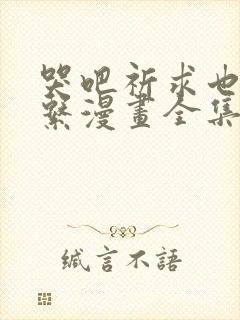 哭吧祈求也
繫漫畫全集
緘言不語